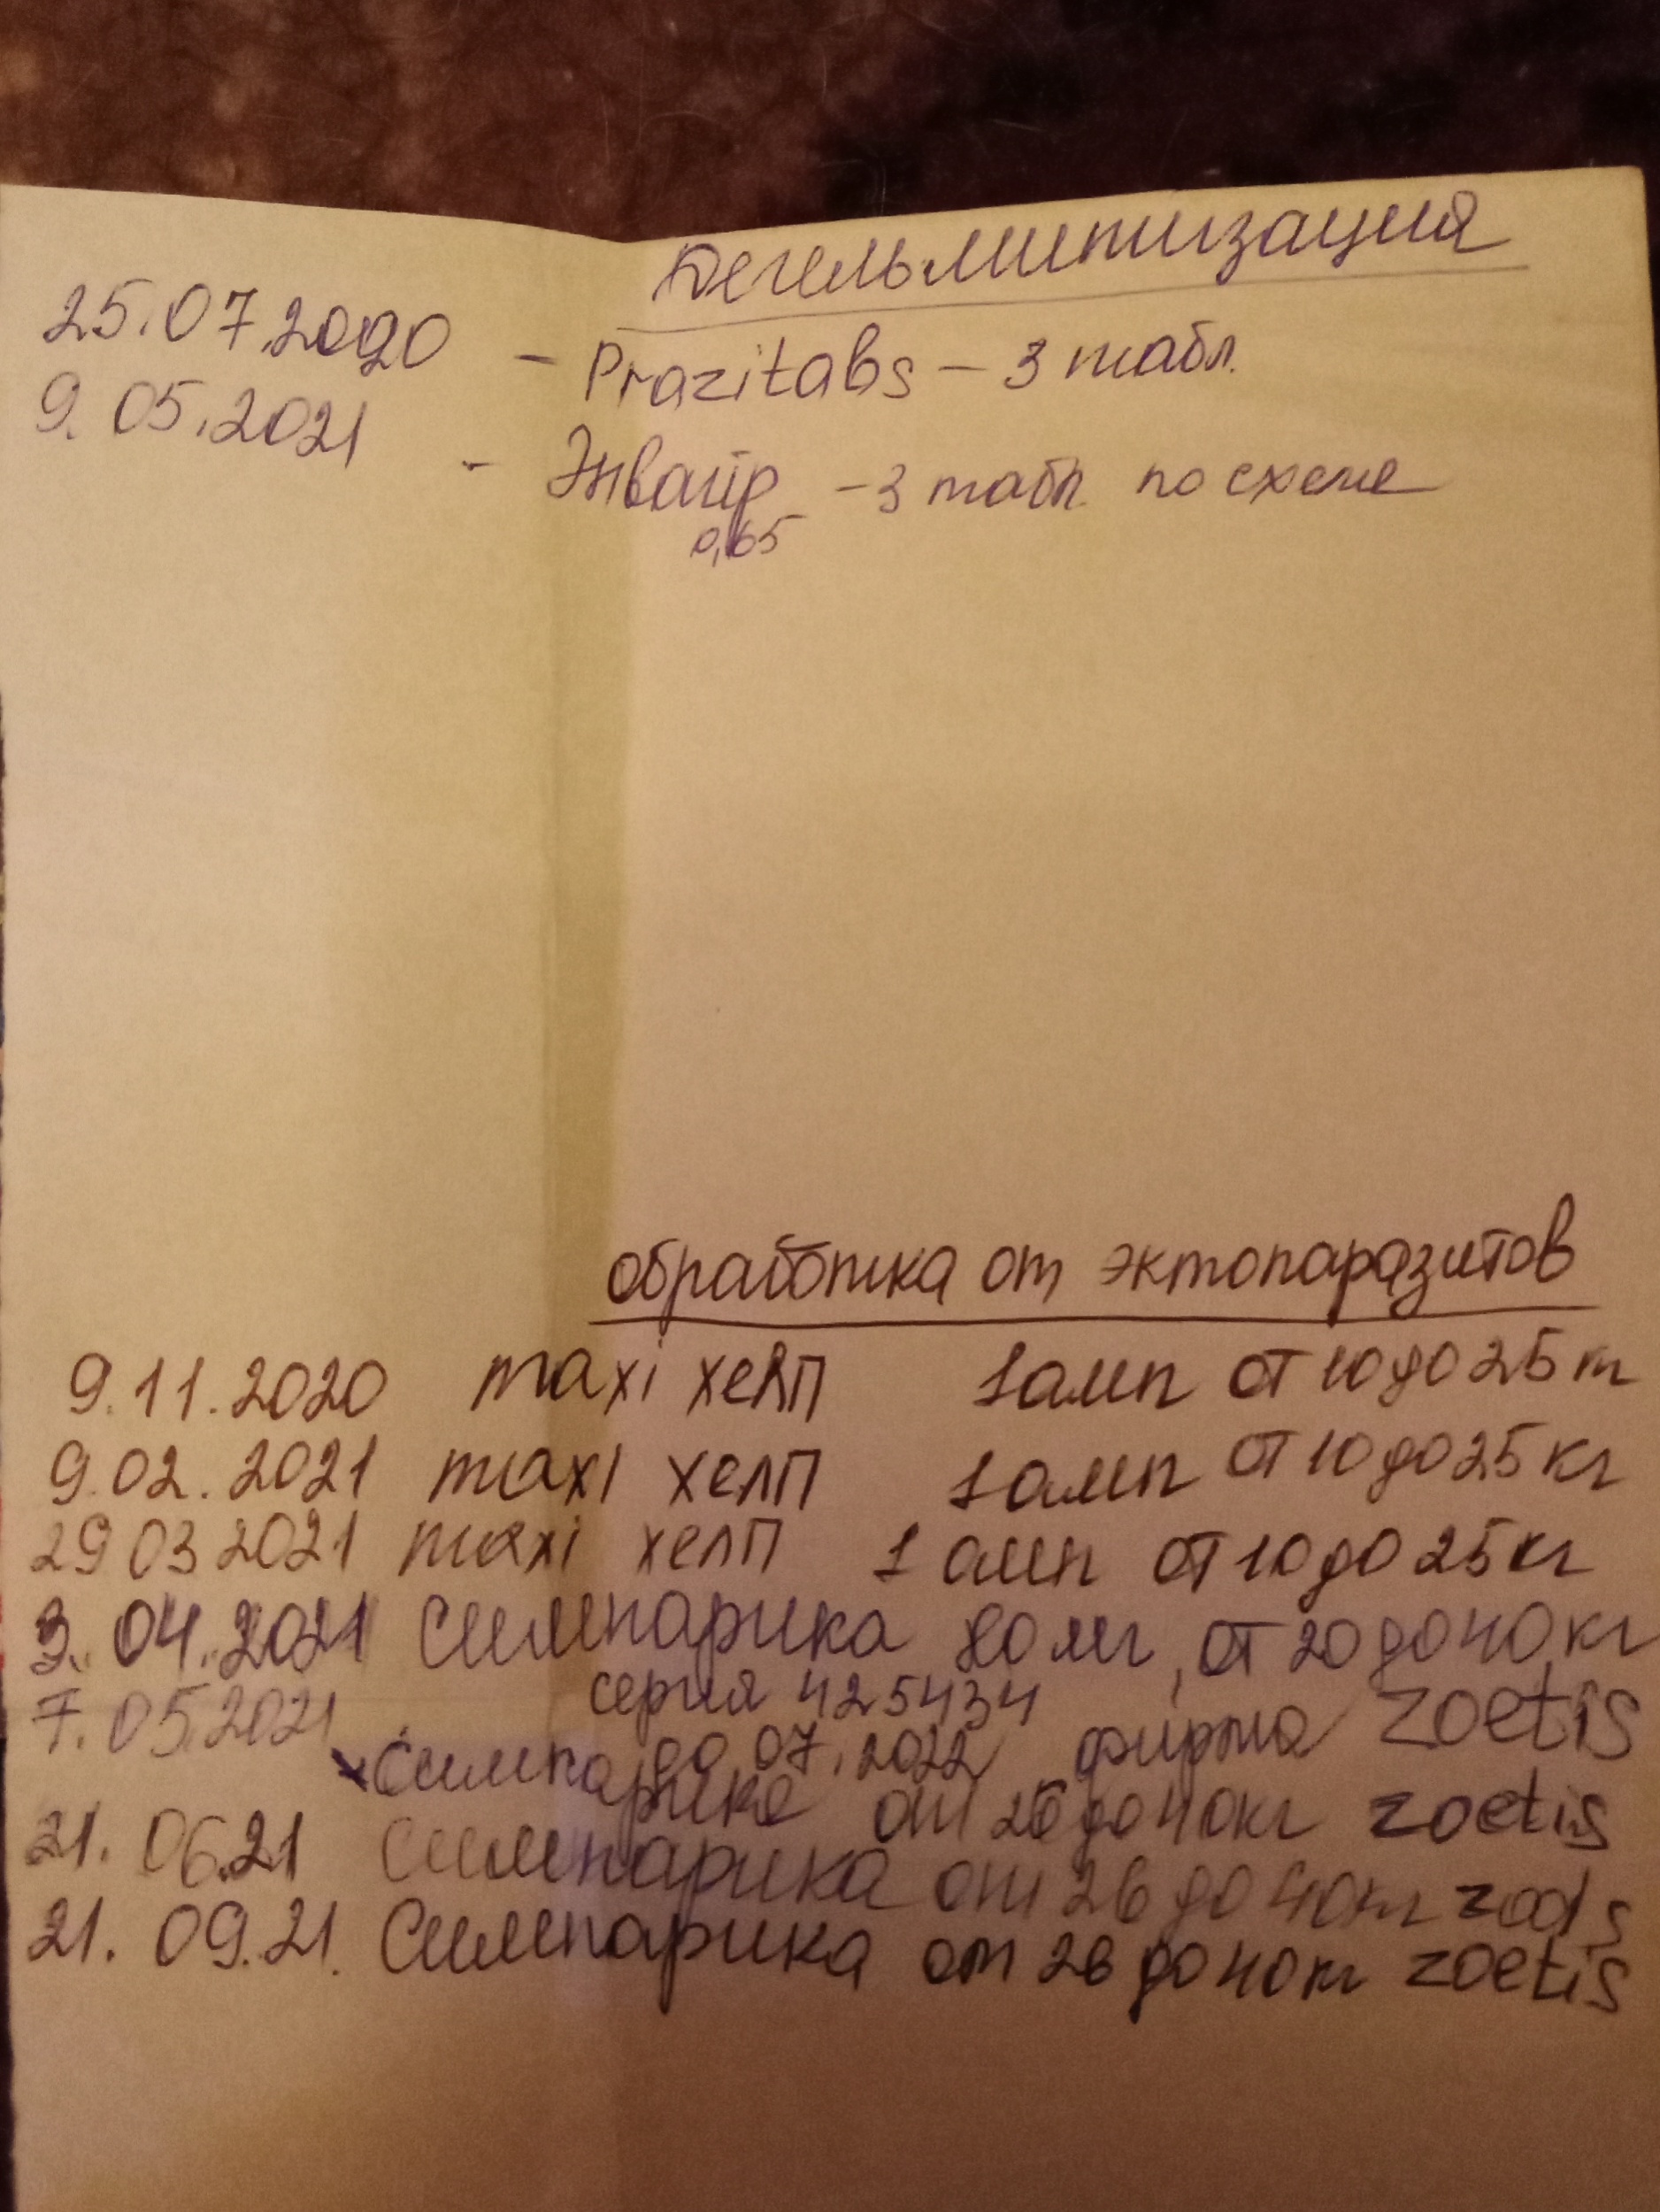 Дегельминтизация
25.07.2020 - Prazitabs - 3 табл.
9.05.2021 - Энвайр - 3 табл. по схеме
0,65
обработка от эктопаразитов
9.11.2020 maxi хелп 1 амп от 10 до 25 кг
9.02.2021 maxi хелп 1 амп от 10 до 25 кг
29 03 2021 maxi хелп 1 амп от 10 до 25 кг
3. 04. 2021 Симпарика 80 мг, от 20 до 40 кг
серия 425434
до 07.2022 фирма zoetis
7.05.2021 Симпарика от 20 до 40 кг zoetis
21.06.21 Симпарика от 26 до 40 кг
21.09.21. Симпарика от 26 до 40 кг zoetis